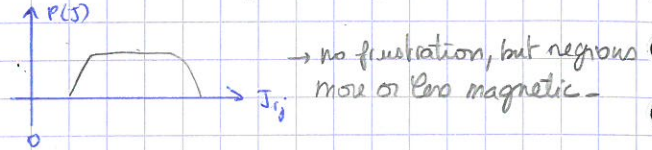 P(J)
→ no frustration, but regions
more or less magnetic -
J_ij
0